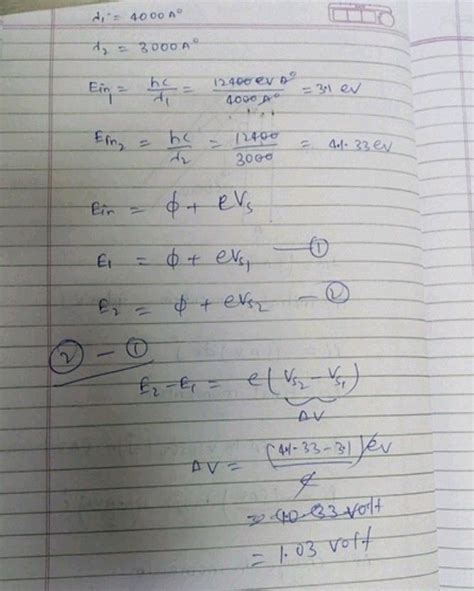 λ₁ = 4000A°
λ₂ = 3000A°
Ein₁ = hc/λ₁ = 12400 eV A°/4000A° = 3.1 eV
Ein₂ = hc/λ₂ = 12400/3000 = 41.33eV
Ein = φ + eVs
E₁ = φ + eVs₁ — ①
E₂ = φ + eVs₂ — ②
② - ①
E₂ - E₁ = e(Vs₂ - Vs₁)
ΔV
ΔV = (41.33 - 3.1)eV/e
= 40.33 volt
= 1.03 volt